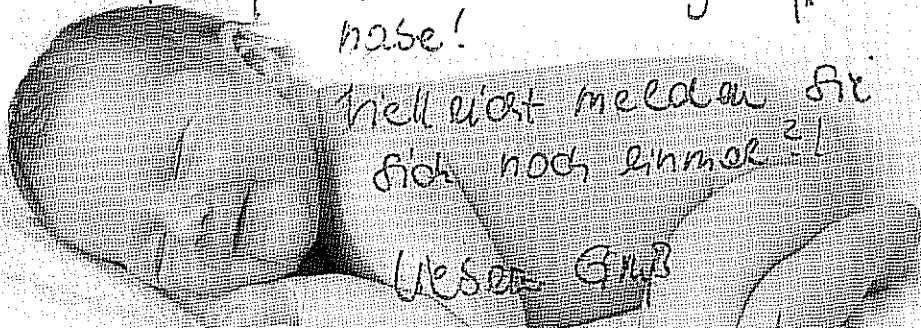 habe!
Vielleicht melden Sie
sich noch einmal?!
Lieben Gruß